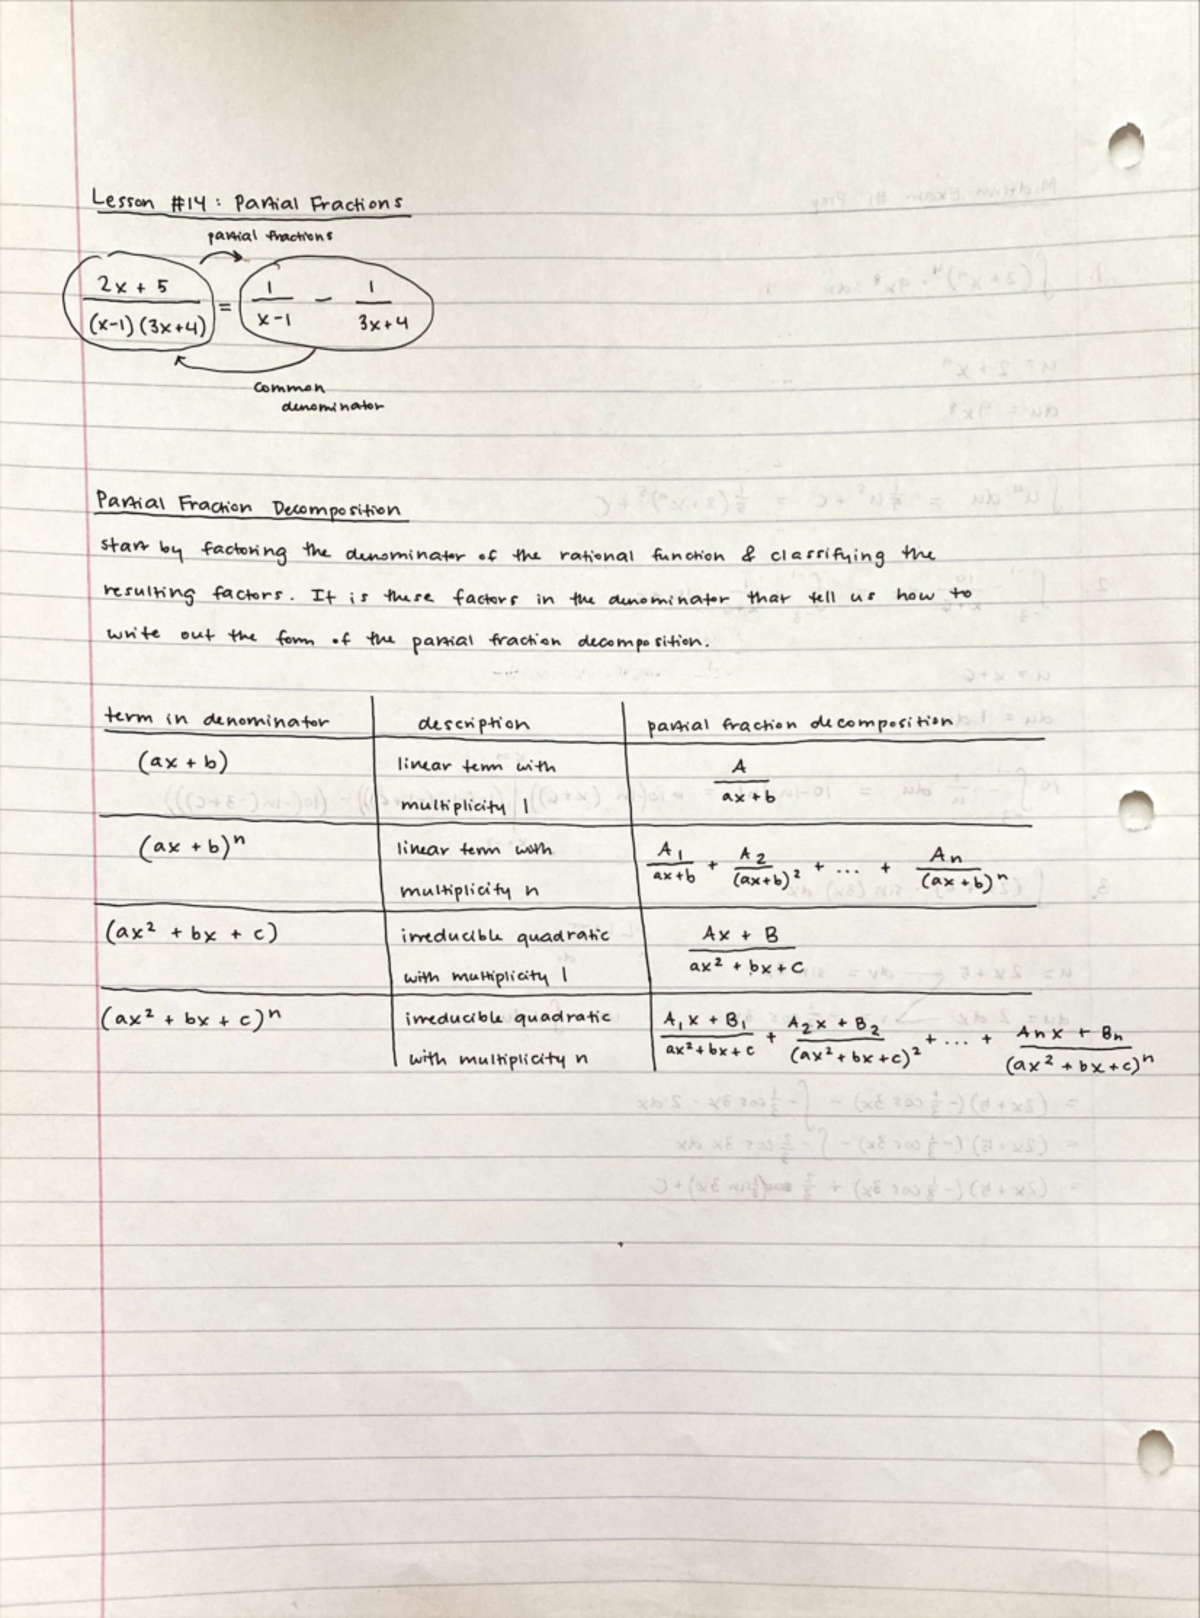 Lesson #14: Partial Fractions
partial fractions
2x + 5 / (x-1)(3x+4) = 1 / x-1 - 1 / 3x+4
common
denominator
Partial Fraction Decomposition
start by factoring the denominator of the rational function & classifying the
resulting factors. It is these factors in the denominator that tell us how to
write out the form of the partial fraction decomposition.
term in denominator description partial fraction decomposition
(ax + b) linear term with A / ax+b
multiplicity 1
(ax + b)^n linear term with A₁ / ax+b + A₂ / (ax+b)² + ... + An / (ax+b)^n
multiplicity n
(ax² + bx + c) irreducible quadratic Ax + B / ax² + bx + c
with multiplicity 1
(ax² + bx + c)^n irreducible quadratic A₁x + B₁ / ax²+bx+c + A₂x + B₂ / (ax²+bx+c)² + ... + Anx + Bn / (ax²+bx+c)^n
with multiplicity n